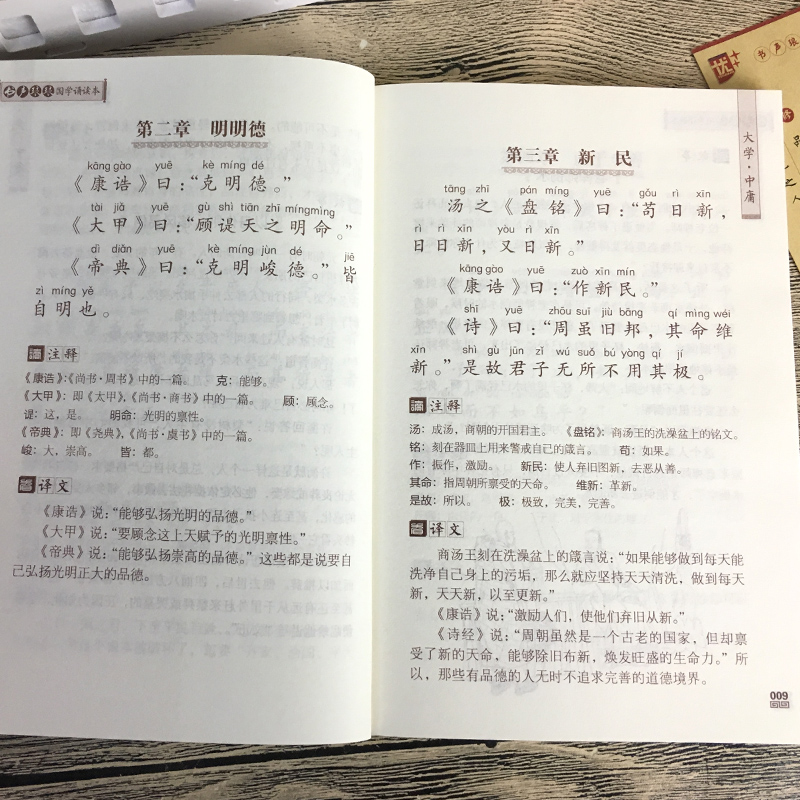 书声琅琅国学诵读本
第二章 明明德
kāng gào yuē kè míng dé
《康诰》曰：“克明德。”
tài jiǎ yuē gù shì tiān zhī míng mìng
《大甲》曰：“顾諟天之明命。”
dì diǎn yuē kè míng jùn dé jiē
《帝典》曰：“克明峻德。”皆
zì míng yě
自明也。
注释
《康诰》：《尚书·周书》中的一篇。 克：能够。
《大甲》：即《太甲》，《尚书·商书》中的一篇。 顾：顾念。
諟：这，是。 明命：光明的禀性。
《帝典》：即《尧典》，《尚书·虞书》中的一篇。
峻：大，崇高。 皆：都。
译文
《康诰》说：“能够弘扬光明的品德。”
《大甲》说：“要顾念这上天赋予的光明禀性。”
《帝典》说：“能够弘扬崇高的品德。”这些都是说要自
己弘扬光明正大的品德。
大学·中庸
第三章 新民
tāng zhī pán míng yuē gǒu rì xīn
汤之《盘铭》曰：“苟日新，
rì rì xīn yòu rì xīn
日日新，又日新。”
kāng gào yuē zuò xīn mín
《康诰》曰：“作新民。”
shī yuē zhōu suī jiù bāng qí mìng wéi
《诗》曰：“周虽旧邦，其命维
xīn shì gù jūn zǐ wú suǒ bú yòng qí jí
新。”是故君子无所不用其极。
注释
汤：成汤，商朝的开国君主。 《盘铭》：商汤王的洗澡盆上的铭文。
铭：刻在器皿上用来警戒自己的箴言。 苟：如果。
作：振作，激励。 新民：使人弃旧图新、去恶从善。
其命：指周朝所禀受的天命。 维新：革新。
是故：所以。 极：极致，完美，完善。
译文
商汤王刻在洗澡盆上的箴言说：“如果能够做到每天能
洗净自己身上的污垢，那么就应坚持天天清洗，做到每天
新，天天新，以至更新。”
《康诰》说：“激励人们，使他们弃旧从新。”
《诗经》说：“周朝虽然是一个古老的国家，但却禀
受了新的天命，能够除旧布新，焕发旺盛的生命力。”所
以，那些有品德的人无时不追求完善的道德境界。
009
优++
书声琅